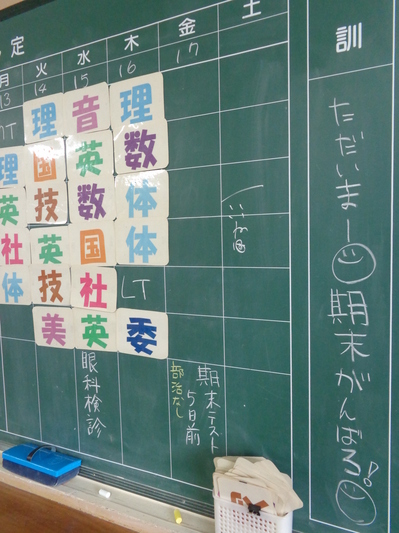 定
月 火 水 木 金 土
13 14 15 16 17
理 音 理
理 国 英 数
英 技 数 体
社 英 国 体
体 技 社 LT
美 英 委
眼科検診
期末テスト
5日前
部活なし
訓
ただいまー
期末がんばろ!